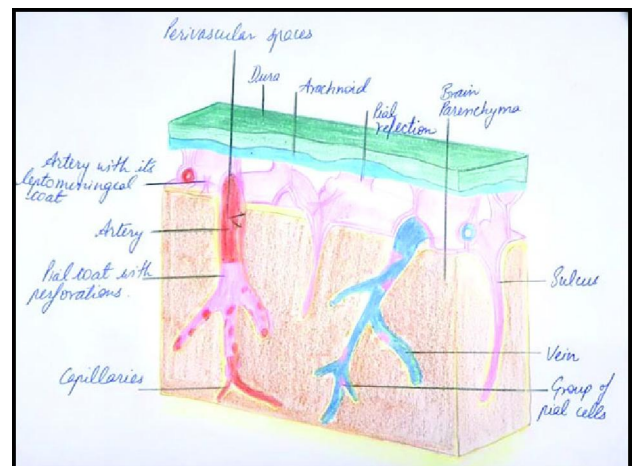 Perivascular spaces
Dura
Arachnoid
Pial
reflection
Brain
Parenchyma
Artery with its
leptomeningeal
coat
Artery
Pial coat with
perforations.
Capillaries
Sulcus
Vein
Group of
pial cells